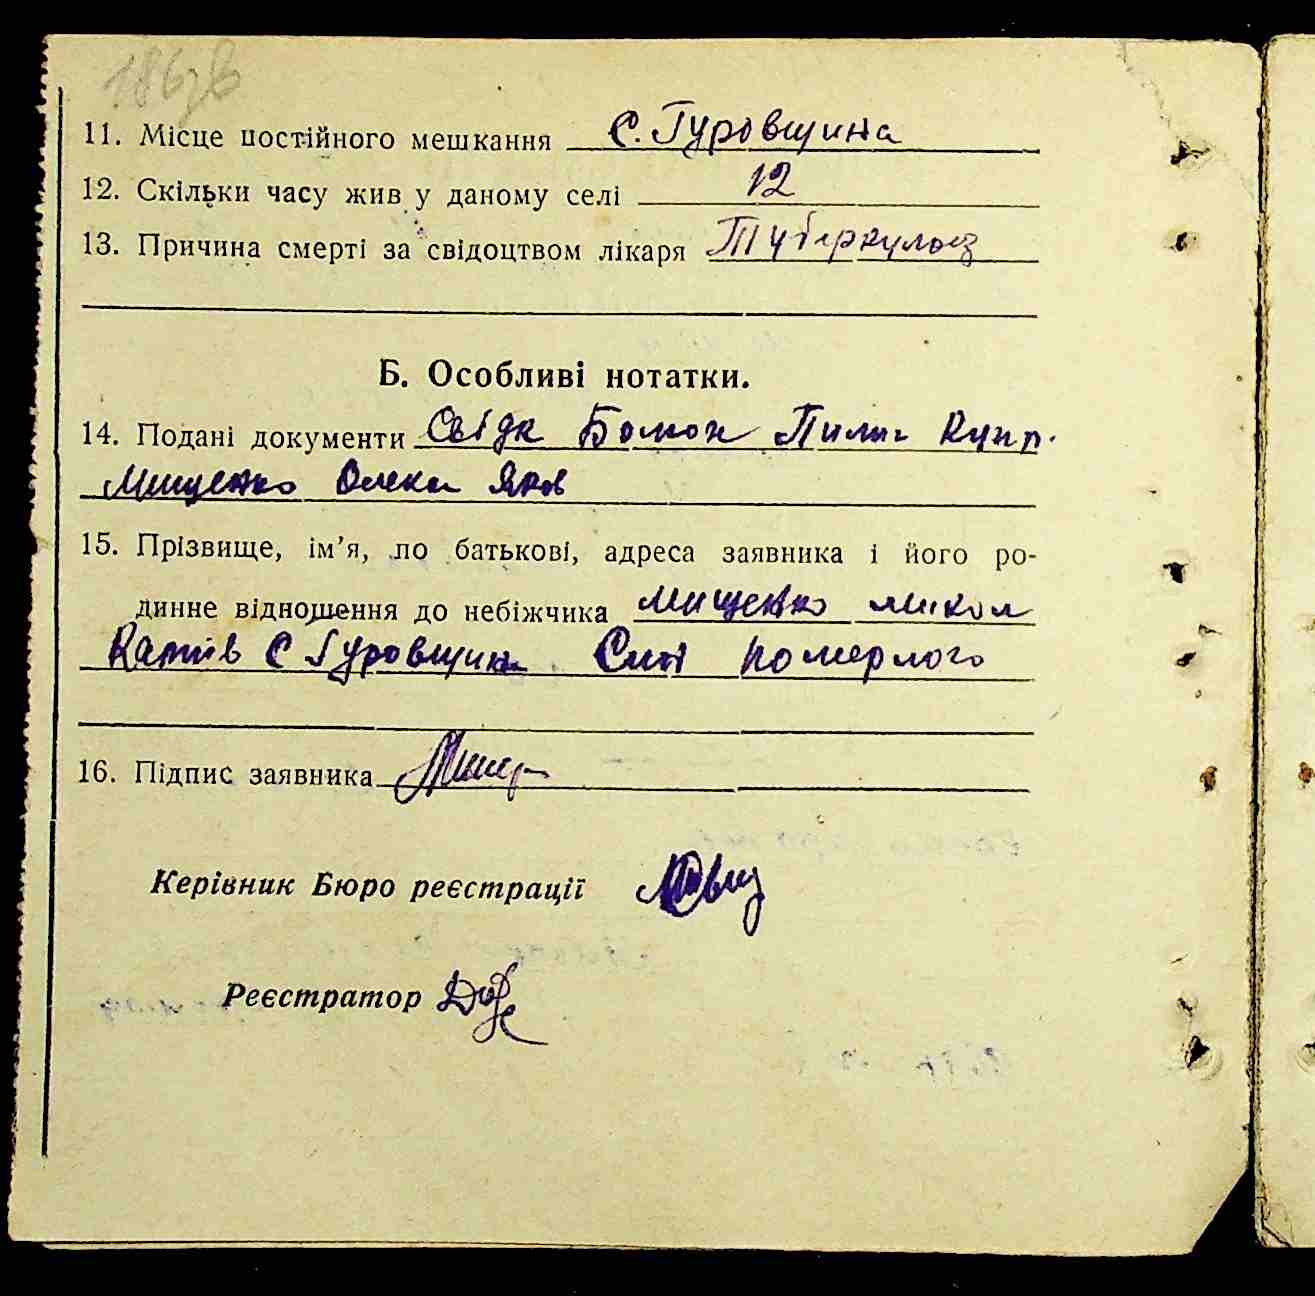 186зв
11. Місце постійного мешкання с. Гуровщина
12. Скільки часу жив у даному селі 12
13. Причина смерті за свідоцтвом лікаря Туберкульоз
Б. Особливі нотатки.
14. Подані документи Свідк Бомон Пилип Купр.
Мищенко Олекс Яков
15. Прізвище, ім'я, по батькові, адреса заявника і його ро-
динне відношення до небіжчика Мищенко Микол
с Гуровщина Син померлого
16. Підпис заявника
Керівник Бюро реєстрації
Реєстратор